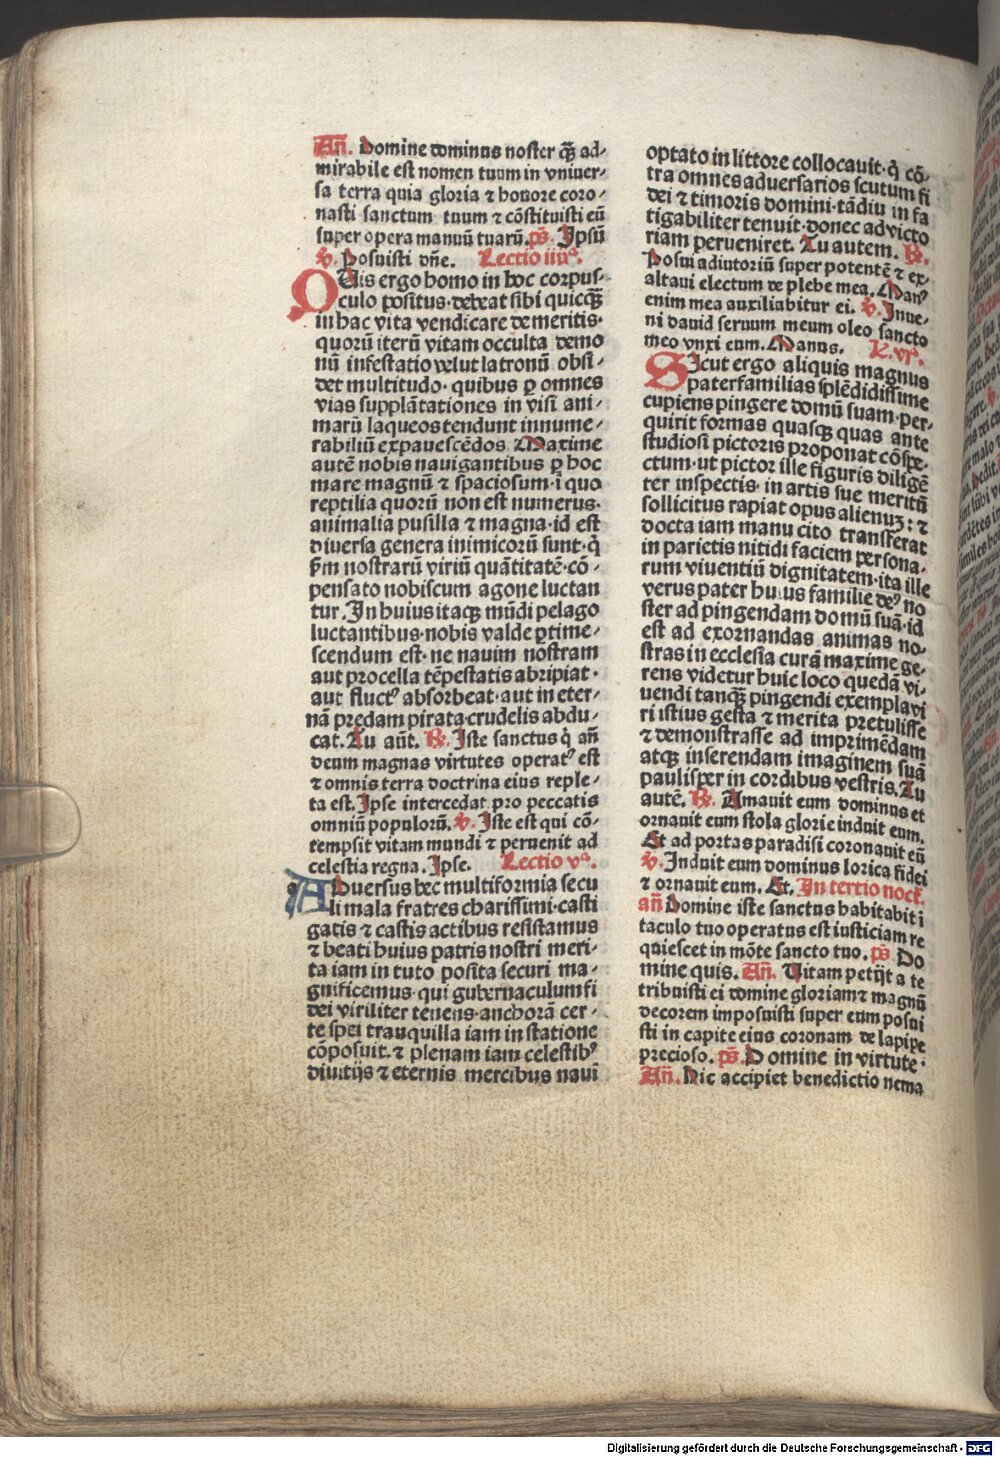 Añ. Domine dominus noster q̄ȝ ad-
mirabile est nomen tuum in vniuer-
sa terra quia gloria ⁊ honore coro-
nasti sanctum tuum ⁊ cōstituisti eū
super opera manuū tuarū. p̄s. Ipsū
v̄. Posuisti dn̄e. Lectio iiijᵃ.
QUis ergo homo in hoc corpus-
culo positus·debeat sibi quicq̄ȝ
in hac vita vendicare de meritis·
quorū iterū vitam occulta demo
nū infestatio velut latronū obsi-
det multitudo· quibus ꝑ omnes
vias supplātationes in visi ani-
marū laqueos tendunt innume-
rabiliū expauescēdos. Maxime
autē nobis nauigantibus ꝑ hoc
mare magnū ⁊ spaciosum·ī quo
reptilia quorū non est numerus·
animalia pusilla ⁊ magna·id est
diuersa genera inimicorū sunt·q̇
ẜm nostrarū viriū quātitatē·cō-
pensato nobiscum agone luctan
tur. In huius itaqȝ mūdi pelago
luctantibus·nobis valde ꝑtime-
scendum est·ne nauim nostram
aut procella tēpestatis abripiat·
aut fluctꝰ absorbeat·aut in eter-
nā predam pirata·crudelis abdu-
cat. Tu aūt. R̄. Iste sanctus q̇ añ
deum magnas virtutes operatꝰ est
⁊ omnis terra doctrina eius reple-
ta est. Ipse intercedat pro peccatis
omniū populorū. v̄. Iste est qui cō-
tempsit vitam mundi ⁊ peruenit ad
celestia regna. Ipse. Lectio vᵃ.
ADuersus hec multiformia secu
li mala fratres charissimi·casti
gatis ⁊ castis actibus resistamus
⁊ beati huius patris nostri meri-
ta iam in tuto posita securi ma-
gnificemus·qui gubernaculum fi
dei viriliter tenens·anchorā cer-
te spei tranquilla iam in statione
cōposuit·⁊ plenam iam celestibꝰ
diuitijs ⁊ eternis mercibus naui
optato in littore collocauit·q̇ cō-
tra omnes aduersarios scutum fi
dei ⁊ timoris domini·tādiu in fa
tigabiliter tenuit·donec ad victo
riam perueniret. Tu autem. R̄.
Posui adiutoriū super potentē ⁊ ex-
altaui electum de plebe mea. Manꝰ
enim mea auxiliabitur ei. v̄. Inue-
ni dauid seruum meum oleo sancto
meo vnxi eum. Manus. L. vjᵃ.
SIcut ergo aliquis magnus
paterfamilias splēdidissime
cupiens pingere domū suam·per-
quirit formas quasqȝ quas ante
studiosi pictoris proponat cōspe-
ctum·ut pictor ille figuris diligē
ter inspectis·in artis sue meritū
sollicitus rapiat opus alienuȝ: ⁊
docta iam manu cito transferat
in parietis nitidi faciem persona-
rum viuentiū dignitatem·ita ille
verus pater huius familie deꝰ no
ster ad pingendam domū suā·id
est ad exornandas animas no-
stras in ecclesia curā maxime ge-
rens videtur huic loco quedā vi-
uendi tanq̄ȝ pingendi exemplavi
ri istius gesta ⁊ merita pretulisse
⁊ demonstrasse ad imprimēdam
atqȝ inserendam imaginem suā
paulisper in cordibus vestris. Tu
autē. R̄. Amauit eum dominus et
ornauit eum stola glorie induit eum.
Et ad portas paradisi coronauit eū
v̄. Induit eum dominus lorica fidei
⁊ ornauit eum. Et. In tertio noct̄.
añ Domine iste sanctus habitabit ī
taculo tuo operatus est iusticiam re
quiescet in mōte sancto tuo. p̄s Do
mine quis. Añ. Uitam petijt a te
tribuisti ei domine gloriam ⁊ magnū
decorem imposuisti super eum posui
sti in capite eius coronam de lapipe
precioso. p̄s. Domine in virtute·
Añ. Hic accipiet benedictio nema
Digitalisierung gefördert durch die Deutsche Forschungsgemeinschaft - DFG